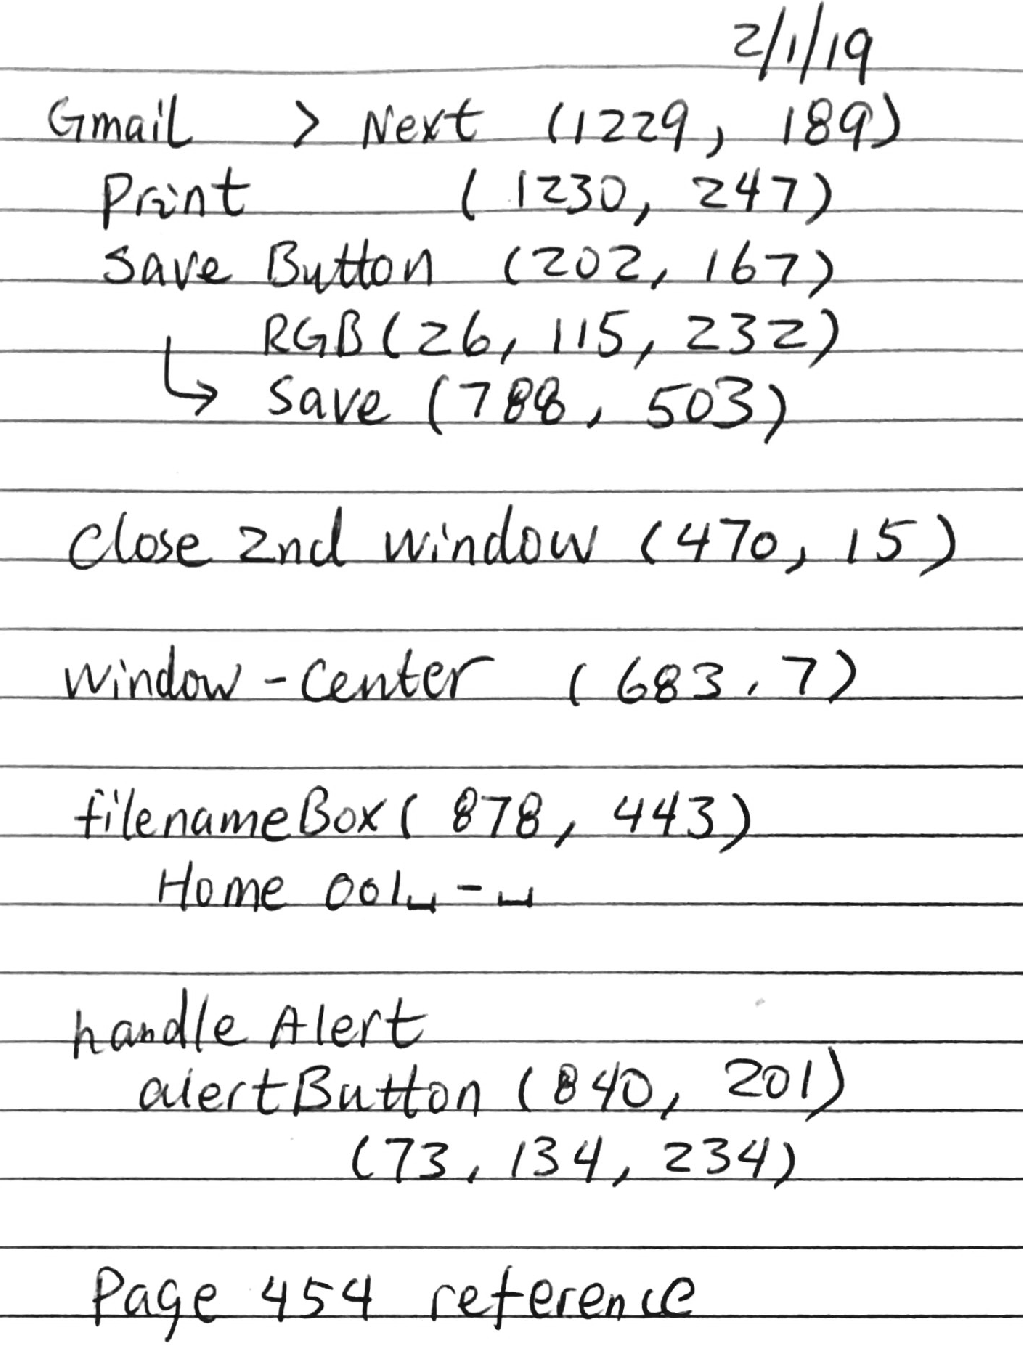 2/1/19
Gmail > Next (1229, 189)
Print (1230, 247)
Save Button (202, 167)
RGB (26, 115, 232)
↳ Save (788, 503)
Close 2nd window (470, 15)
window-center (683, 7)
filenameBox (878, 443)
Home 001␣-␣
handle Alert
alertButton (840, 201)
(73, 134, 234)
Page 454 reference